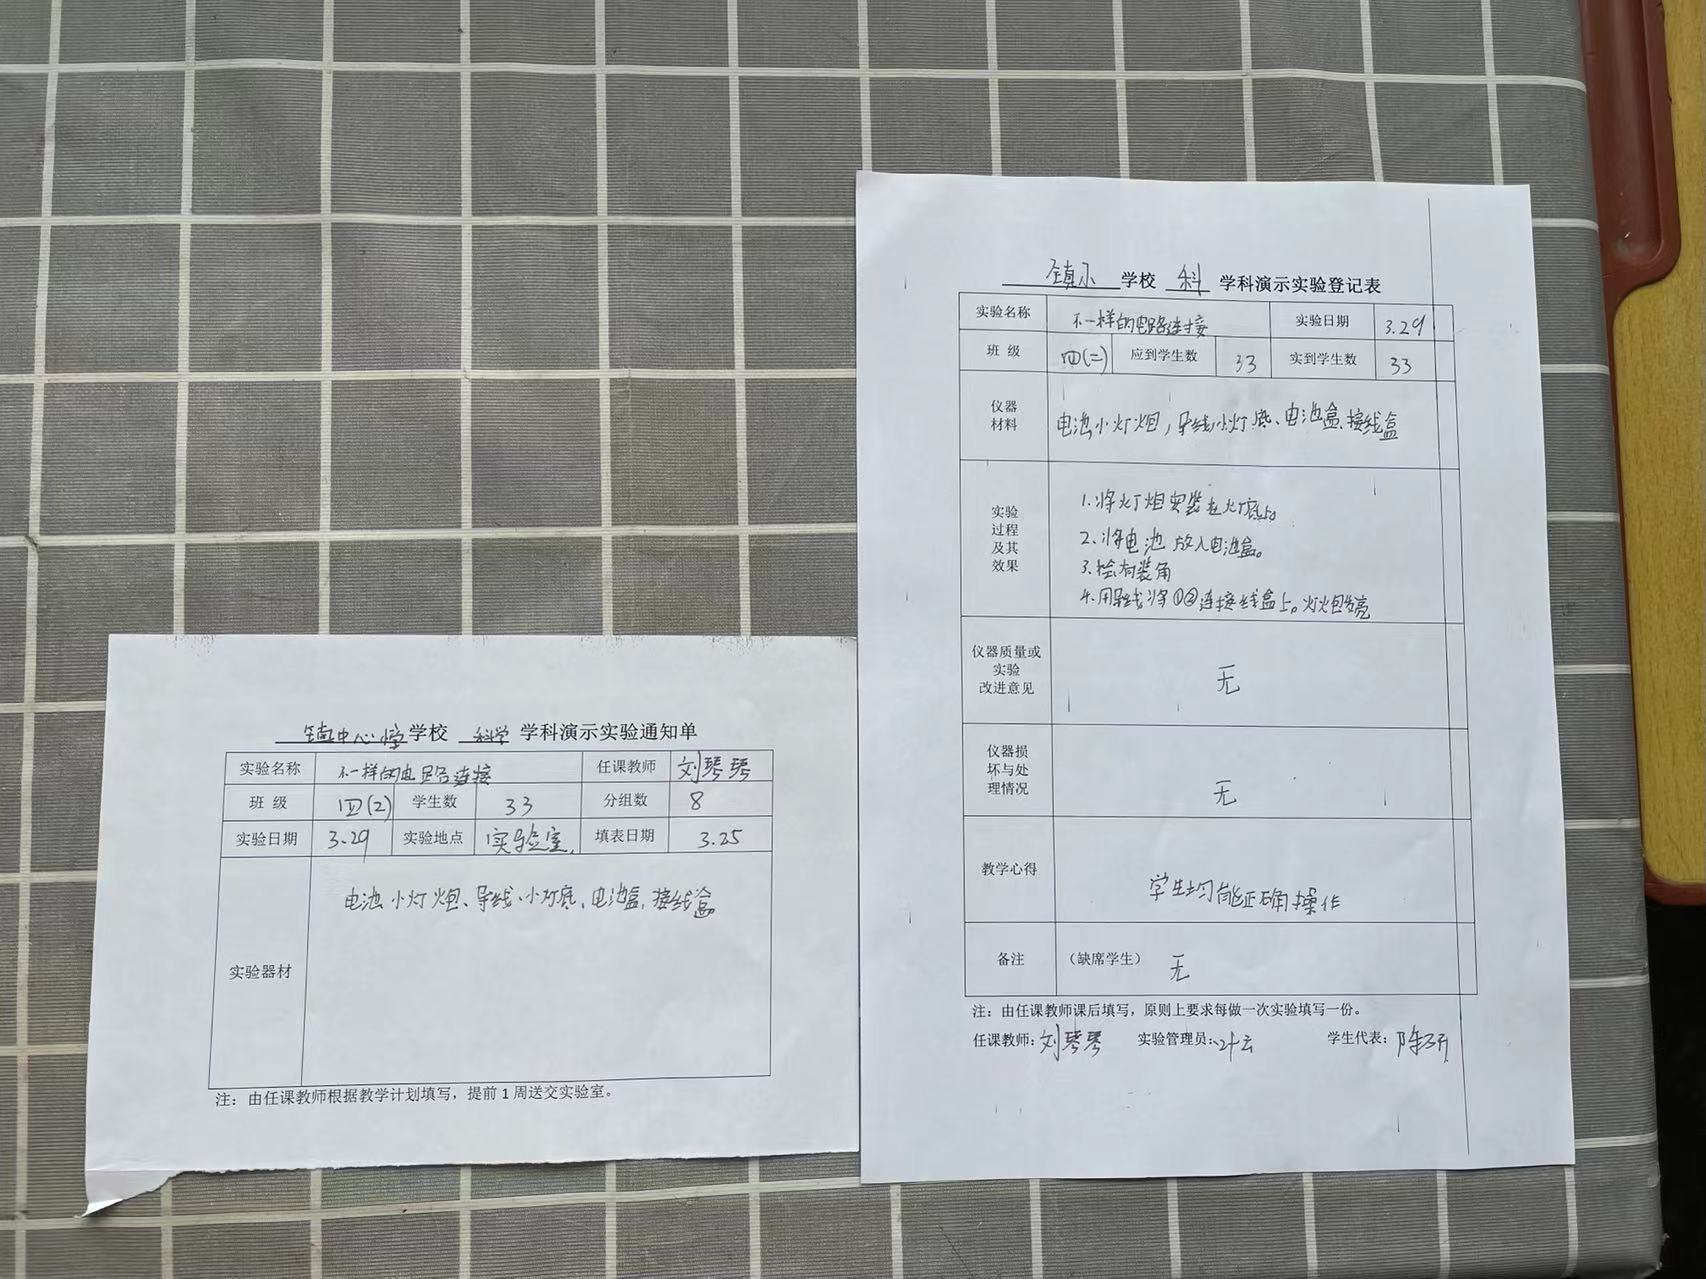 镇中心小学 学校 科学 学科演示实验通知单
实验名称 不一样的电路连接 任课教师 刘琴琴
班 级 四(2) 学生数 33 分组数 8
实验日期 3.29 实验地点 实验室 填表日期 3.25
实验器材 电池、小灯炮、导线、小灯底、电池盒、接线盒
注：由任课教师根据教学计划填写，提前1周送交实验室。
镇小 学校 科 学科演示实验登记表
实验名称 不一样的电路连接 实验日期 3.29
班 级 四(二) 应到学生数 33 实到学生数 33
仪器
材料
电池小灯炮，导线小灯底、电池盒、接线盒
实验
过程
及其
效果
1.将灯炮安装在灯底上。
2、将电池放入电池盒。
3.
4.用导线将①②连接线盒上。灯炮发亮
仪器质量或
实验
改进意见
无
仪器损
坏与处
理情况
无
教学心得 学生均能正确操作
备注 （缺席学生） 无
注：由任课教师课后填写，原则上要求每做一次实验填写一份。
任课教师：刘琴琴 实验管理员：叶云 学生代表：陈